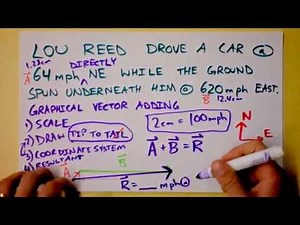 LOU REED DROVE A CAR @
1.28cm DIRECTLY
A 64 mph NE WHILE THE GROUND
SPUN UNDERNEATH HIM @ 620 mph EAST.
B 12.4cm
GRAPHICAL VECTOR ADDING
1) SCALE
2) DRAW TIP TO TAIL
3) COORDINATE SYSTEM
4) RESULTANT
2cm = 100mph
A + B = R
N
E
A
B
R = ___ mph @